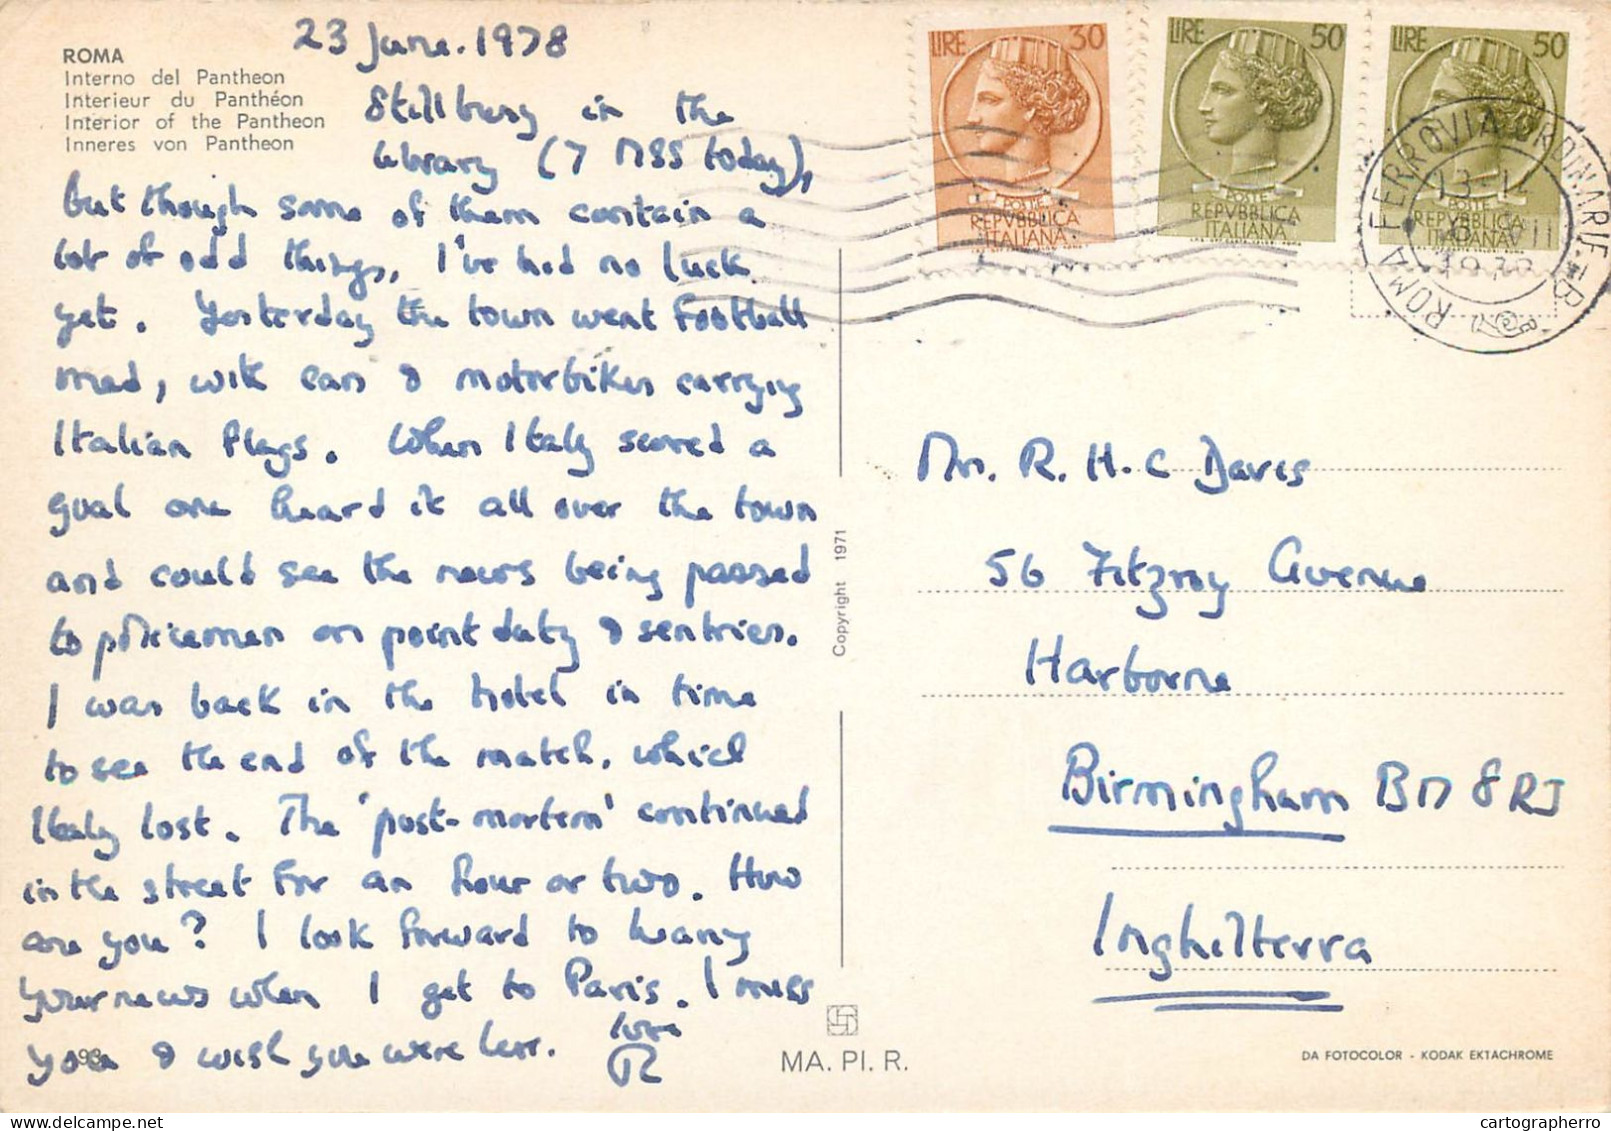 ROMA
Interno del Pantheon
Interieur du Panthéon
Interior of the Pantheon
Inneres von Pantheon
23 June. 1978
Still busy in the
library (7 MSS today),
but though some of them contain a
lot of odd things, I've had no luck
yet. Yesterday the town went football
mad, with cars & motorbikes carrying
Italian flags. When Italy scored a
goal one heard it all over the town
and could see the news being passed
to policemen on point duty & sentries.
I was back in the hotel in time
to see the end of the match, which
Italy lost. The 'post-mortem' continued
in the street for an hour or two. How
are you? I look forward to hearing
your news when I get to Paris. I miss
you & wish you were here. love
R
98
LIRE 30
POSTE
REPVBBLICA
ITALIANA
LIRE 50
POSTE
REPVBBLICA
ITALIANA
LIRE 50
POSTE
REPVBBLICA
ITALIANA
ROMA FERROVIA ORDINARIE - B
13-14
Mrs. R. H. C Davis
56 Fitzroy Avenue
Harborne
Birmingham B17 8RJ
Inghilterra
Copyright 1971
MA. PI. R.
DA FOTOCOLOR - KODAK EKTACHROME
cartographerro